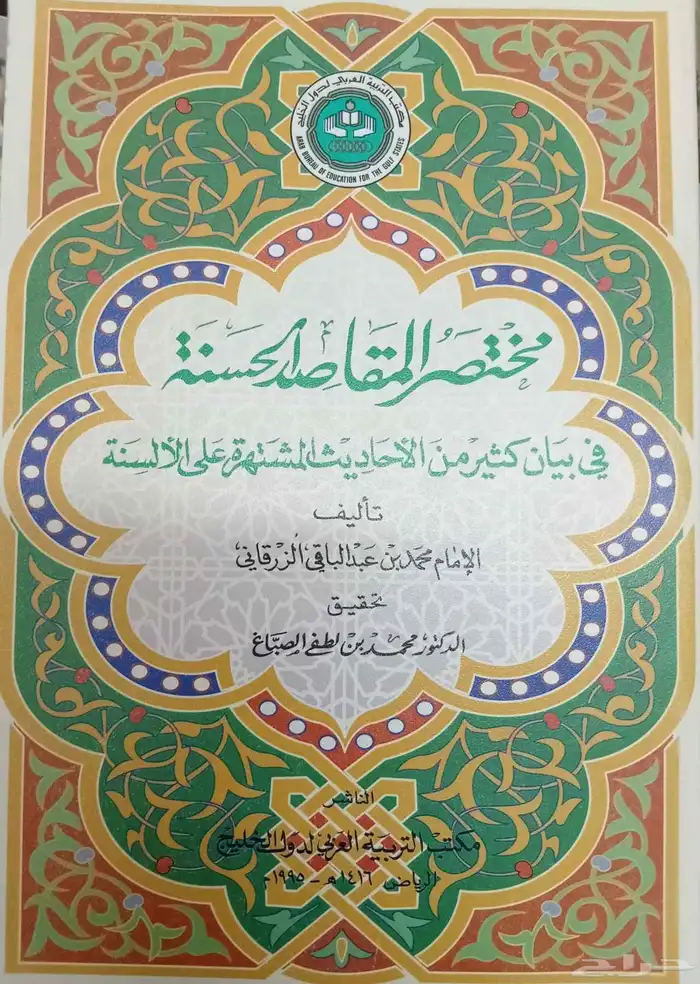 مكتب التربية العربي لدول الخليج
ARAB BUREAU OF EDUCATION FOR THE GULF STATES
مختصر المقاصد الحسنة
في بيان كثير من الأحاديث المشتهرة على الألسنة
تأليف
الإمام محمد بن عبد الباقي الزرقاني
تحقيق
الدكتور محمد بن لطفي الصباغ
الناشر
مكتب التربية العربي لدول الخليج
الرياض ١٤١٦هـ - ١٩٩٥م
حراج